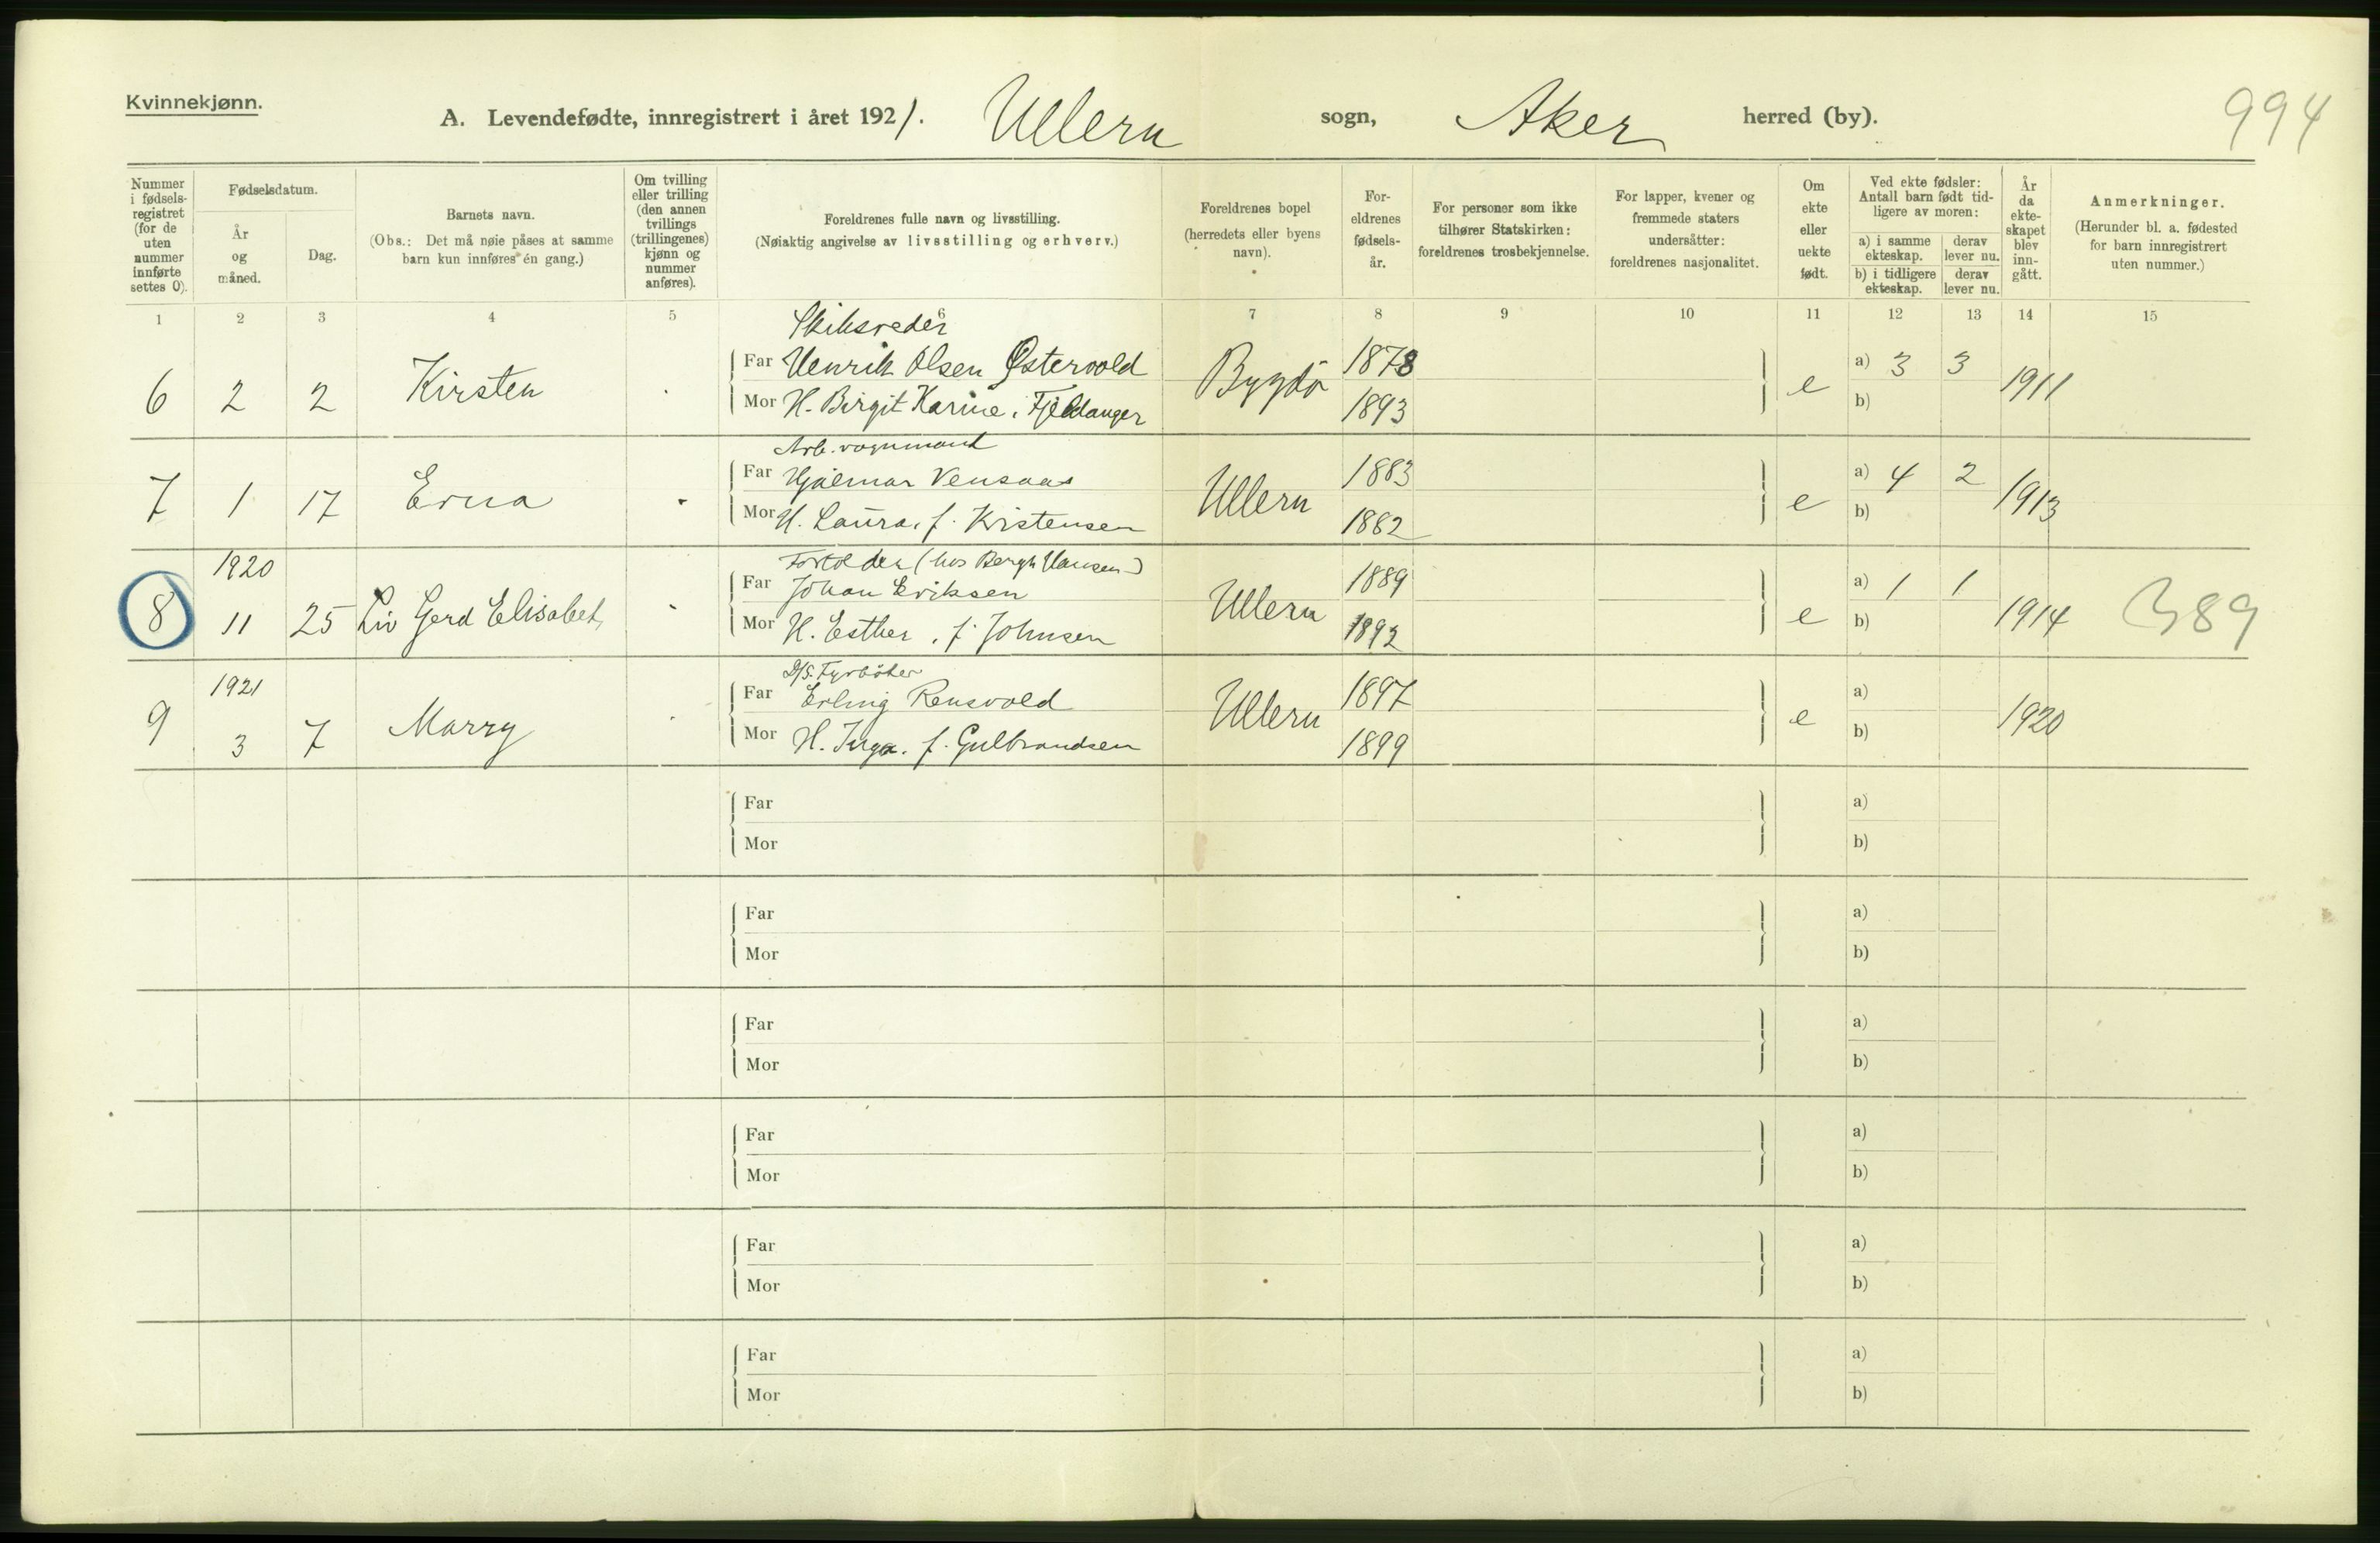 Kvinnekjønn.
A. Levendefødte, innregistrert i året 1921. Ullern sogn, Aker herred (by).
994
Nummer i fødsels-registret (for de uten nummer innførte settes 0).
Fødselsdatum.
År og måned.
Dag.
Barnets navn.
(Obs.: Det må nøie påses at samme barn kun innføres én gang.)
Om tvilling eller trilling (den annen tvillings (trillingenes) kjønn og nummer anføres).
Foreldrenes fulle navn og livsstilling.
(Nøiaktig angivelse av livsstilling og erhverv.)
Foreldrenes bopel (herredets eller byens navn).
For-eldrenes fødsels-år.
For personer som ikke tilhører Statskirken: foreldrenes trosbekjennelse.
For lapper, kvener og fremmede staters undersåtter: foreldrenes nasjonalitet.
Om ekte eller uekte født.
Ved ekte fødsler: Antall barn født tid-ligere av moren:
a) i samme ekteskap.
derav lever nu.
b) i tidligere ekteskap.
derav lever nu.
År da ekte-skapet blev inn-gått.
Anmerkninger.
(Herunder bl. a. fødested for barn innregistrert uten nummer.)
1 2 3 4 5 6 7 8 9 10 11 12 13 14 15
Skibsreder
6 2 2 Kirsten Far Henrik Olsen Østervold Bygdö 1878 e a) 3 3 1911
Mor H. Birgit Karine, Fjeldanger 1893 b)
Arb. vognmand
7 1 17 Erna Far Hjalmar Vensaas Ullern 1883 e a) 4 2 1913
Mor H. Laura, f. Kristensen 1882 b)
1920 (hos Bergh Hansen)
8 11 25 Liv Gerd Elisabet, Far Johan Eriksen Ullern 1889 e a) 1 1 1914 389
Mor H. Esther, f. Johnsen 1892 b)
1921 D/S. Fyrböter
9 3 7 Marry Far Erling Rensvold Ullern 1897 e a) 1920
Mor H. Inga. f. Gulbrandsen 1899 b)
Far a)
Mor b)
Far a)
Mor b)
Far a)
Mor b)
Far a)
Mor b)
Far a)
Mor b)
Far a)
Mor b)